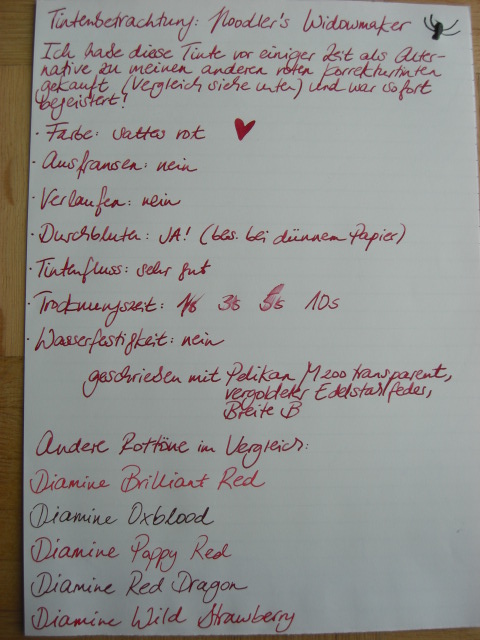 Tintenbetrachtung: Noodler's Widowmaker
Ich habe diese Tinte vor einiger Zeit als Alter-
native zu meinen anderen roten Korrekturtinten
gekauft (Vergleich siehe unten) und war sofort
begeistert!
· Farbe: sattes rot
· Ausfransen: nein
· Verlaufen: nein
· Durchbluten: JA! (bes. bei dünnem Papier)
· Tintenfluss: sehr gut
· Trocknungszeit: 1s 3s 5s 10s
· Wasserfestigkeit: nein
geschrieben mit Pelikan M200 transparent,
vergoldeter Edelstahlfeder,
Breite B
Andere Rottöne im Vergleich:
Diamine Brilliant Red
Diamine Oxblood
Diamine Poppy Red
Diamine Red Dragon
Diamine Wild Strawberry